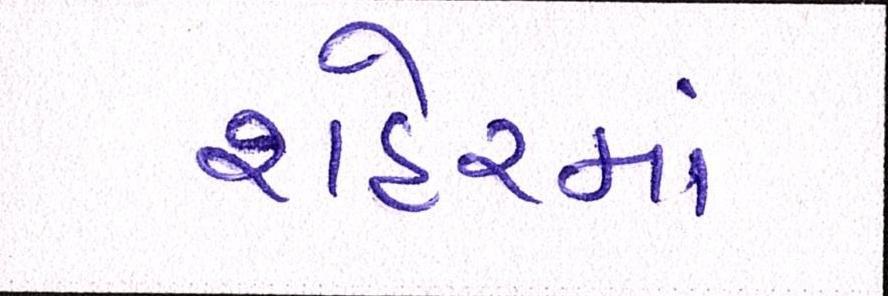 શહેરમાં